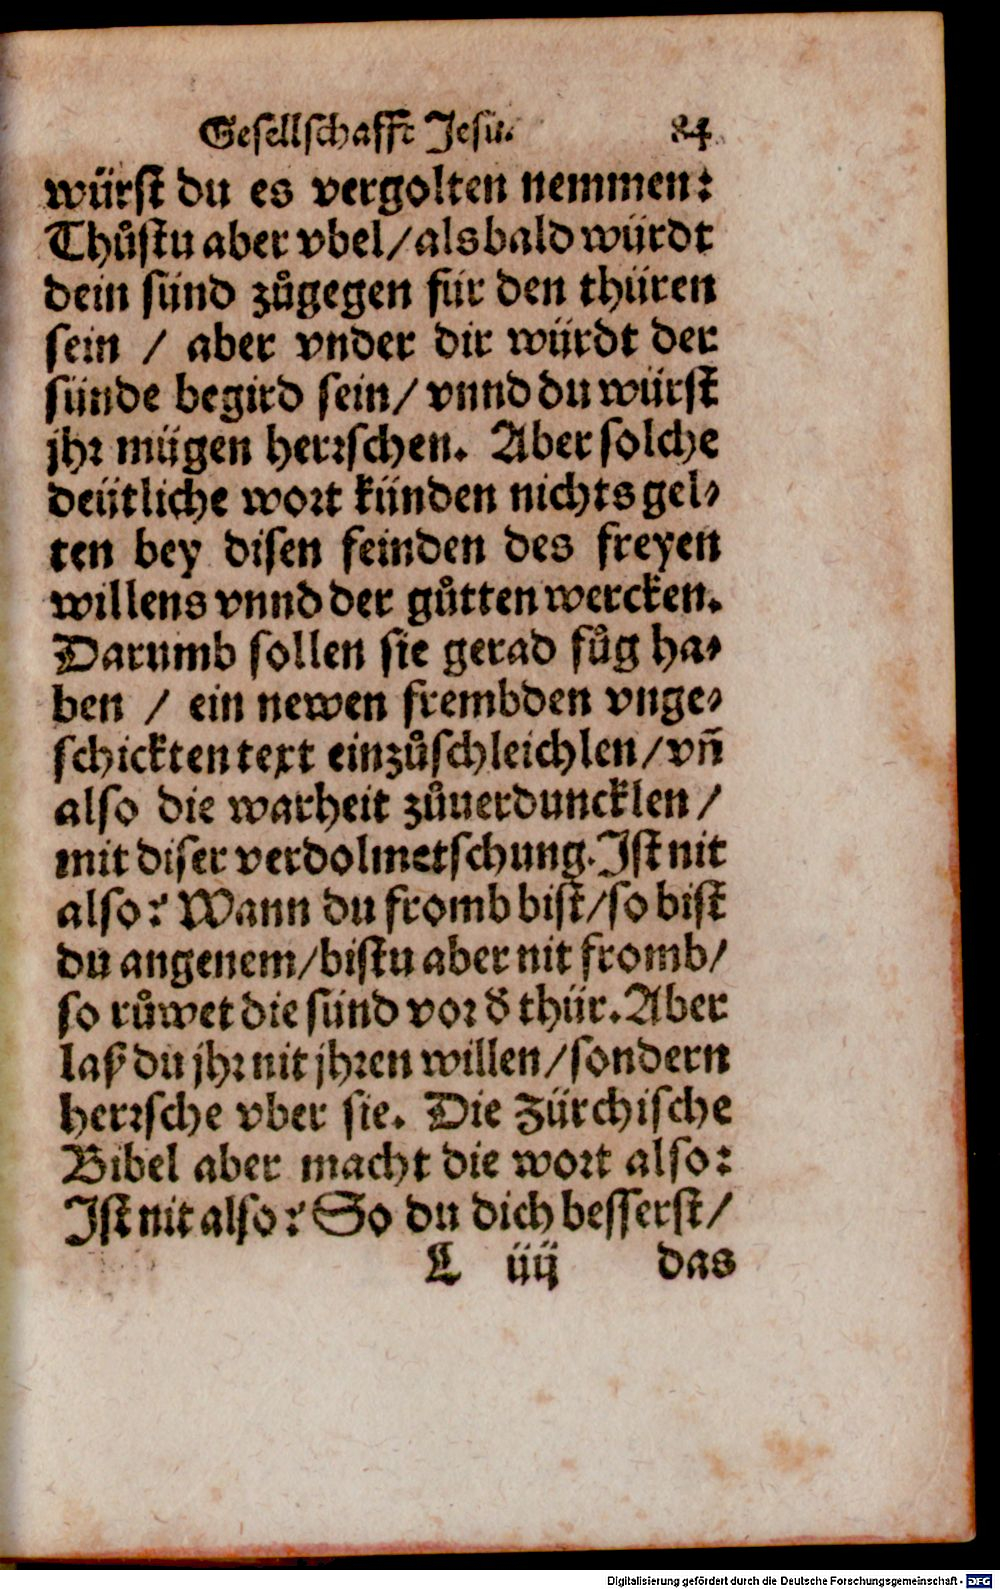 Gesellschafft Jesu. 84
würst du es vergolten nemmen:
Thůstu aber vbel/alsbald würdt
dein sünd zůgegen für den thüren
sein / aber vnder dir würdt der
sünde begird sein/ vnnd du würst
jhr mügen herrschen. Aber solche
deütliche wort künden nichts gel⸗
ten bey disen feinden des freyen
willens vnnd der gůtten wercken.
Darumb sollen sie gerad fůg ha⸗
ben / ein newen frembden vnge⸗
schickten text einzůschleichlen/ vn̄
also die warheit zůuerduncklen /
mit diser verdolmetschung. Ist nit
also? Wann du fromb bist/so bist
du angenem/bistu aber nit fromb/
so růwet die sünd vor d̓ thür. Aber
laß du jhr nit jhren willen/sondern
herrsche vber sie. Die Zürchische
Bibel aber macht die wort also:
Ist nit also? So du dich besserst/
L iiij das
Digitalisierung gefördert durch die Deutsche Forschungsgemeinschaft - DFG